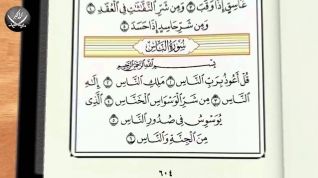 غَاسِقٍ إِذَا وَقَبَ ٣ وَمِن شَرِّ النَّفَّاثَاتِ فِي الْعُقَدِ ٤
وَمِن شَرِّ حَاسِدٍ إِذَا حَسَدَ ٥
سُورَةُ النَّاسِ
بِسْمِ اللَّهِ الرَّحْمَٰنِ الرَّحِيمِ
قُلْ أَعُوذُ بِرَبِّ النَّاسِ ١ مَلِكِ النَّاسِ ٢ إِلَٰهِ
النَّاسِ ٣ مِن شَرِّ الْوَسْوَاسِ الْخَنَّاسِ ٤ الَّذِي
يُوَسْوِسُ فِي صُدُورِ النَّاسِ ٥
مِنَ الْجِنَّةِ وَالنَّاسِ ٦
٦٠٤